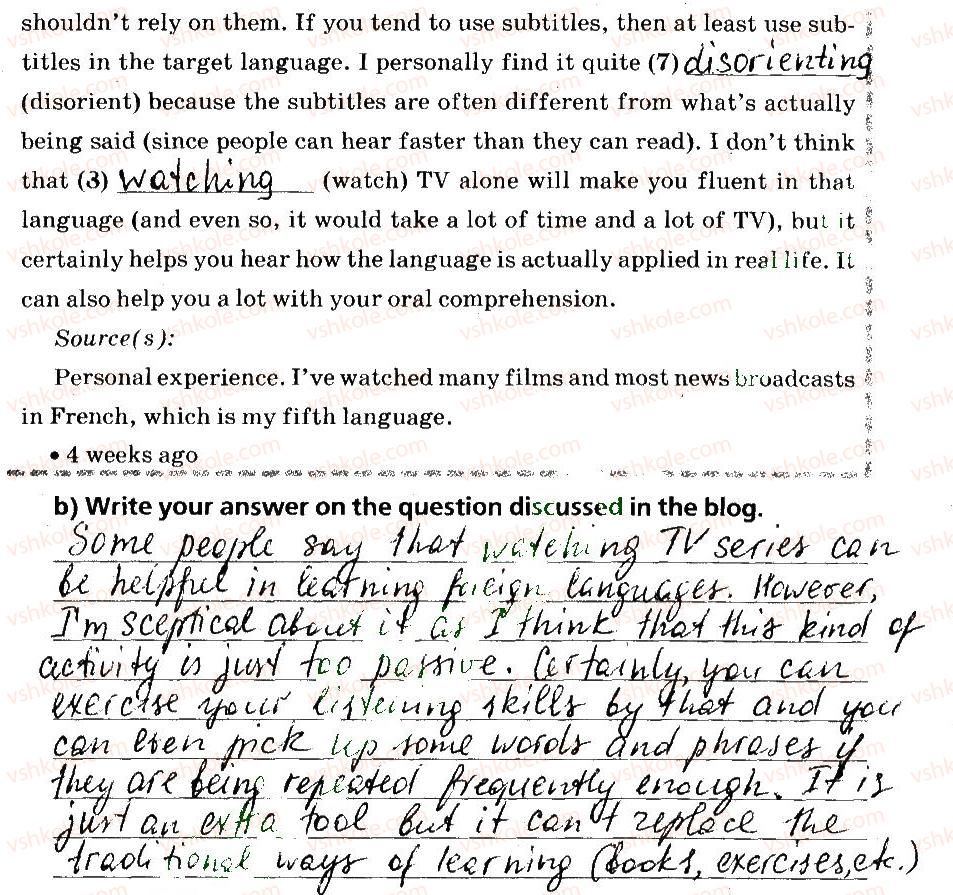 shouldn't rely on them. If you tend to use subtitles, then at least use sub-
titles in the target language. I personally find it quite (7) disorienting
(disorient) because the subtitles are often different from what's actually
being said (since people can hear faster than they can read). I don't think
that (3) watching (watch) TV alone will make you fluent in that
language (and even so, it would take a lot of time and a lot of TV), but it
certainly helps you hear how the language is actually applied in real life. It
can also help you a lot with your oral comprehension.
Source(s):
Personal experience. I've watched many films and most news broadcasts
in French, which is my fifth language.
• 4 weeks ago
b) Write your answer on the question discussed in the blog.
Some people say that watching TV series can
be helpful in learning foreign languages. However,
I'm sceptical about it as I think that this kind of
activity is just too passive. Certainly, you can
exercise your listening skills by that and you
can even pick up some words and phrases if
they are being repeated frequently enough. It is
just an extra tool but it can't replace the
traditional ways of learning (books, exercises, etc.)